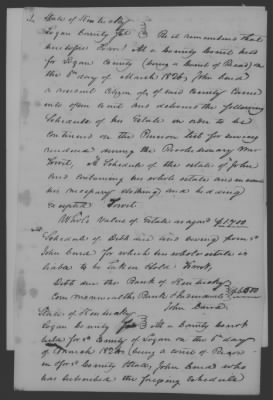 State of Kentucky
Logan County Sct } Be it remembered that
heretofore Towit: At a County Court held
for Logan County (being a Court of Record) on
the 6th day of March 1826, John
a resident Citizen of said County Came
into open Court and delivered the following
Schedule of his Estate in order to be
continued on the Pension List for services
rendered during the Revolutionary War
Towit, A Schedule of the estate of John
and containing his whole estate
his necessary clothing and bedding
excepted Towit
Whole Value of Estate as aforesd $17.00
Schedule of Debts due and owing from sd
John for which his whole estate is
liable to be taken Hold Towit,
Debt due the Bank of Kentucky
Commonwealths Bank
John
State of Kentucky
Logan County Sct } At a County Court
held for sd County of Logan on the 6th day
of March 1826 (being a Court of Record
in sd County & State, John who
has subscribed the foregoing Schedule